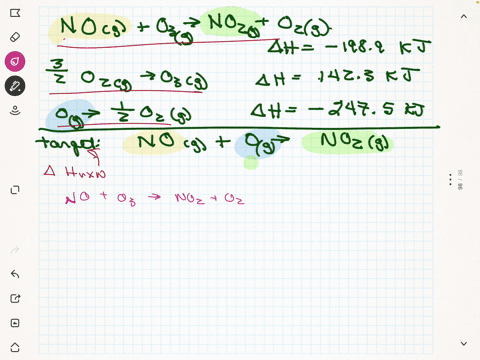 NO(g) + O3(g) → NO2(g) + O2(g). ΔH = -198.9 KJ
3/2 O2(g) → O3(g) ΔH = 142.3 KJ
O(g) → 1/2 O2(g) ΔH = -247.5 KJ
target: NO(g) + O(g) → NO2(g)
Δ Hrxn
NO + O3 → NO2 + O2